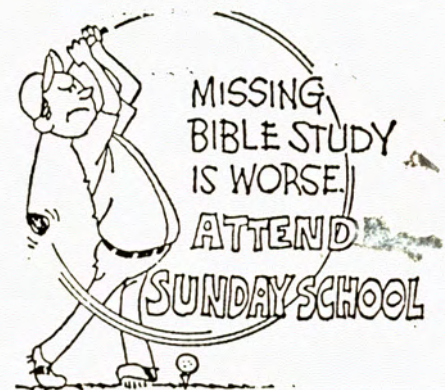 MISSING
BIBLE STUDY
IS WORSE.
ATTEND
SUNDAY SCHOOL